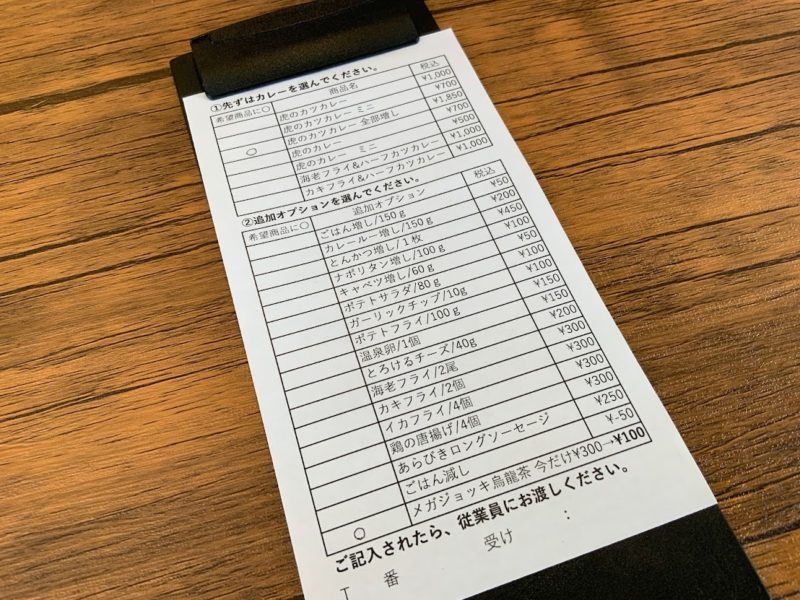 ①先ずはカレーを選んでください。
希望商品に○ 商品名 税込
虎のカツカレー ¥1,000
虎のカツカレー ミニ ¥700
○ 虎のカツカレー 全部増し ¥1,850
虎のカレー ¥700
虎のカレー ミニ ¥500
海老フライ&ハーフカツカレー ¥1,000
カキフライ&ハーフカツカレー ¥1,000
②追加オプションを選んでください。
希望商品に○ 追加オプション 税込
ごはん増し/150g ¥50
カレールー増し/150g ¥200
とんかつ増し/1枚 ¥450
ナポリタン増し/100g ¥100
キャベツ増し/60g ¥50
ポテトサラダ/80g ¥100
ガーリックチップ/10g ¥100
ポテトフライ/100g ¥150
温泉卵/1個 ¥150
とろけるチーズ/40g ¥200
海老フライ/2尾 ¥300
カキフライ/2個 ¥300
イカフライ/4個 ¥300
鶏の唐揚げ/4個 ¥300
あらびきロングソーセージ ¥250
ごはん減し ¥-50
○ メガジョッキ烏龍茶 今だけ¥300→¥100
ご記入されたら、従業員にお渡しください。
T 番 受け :